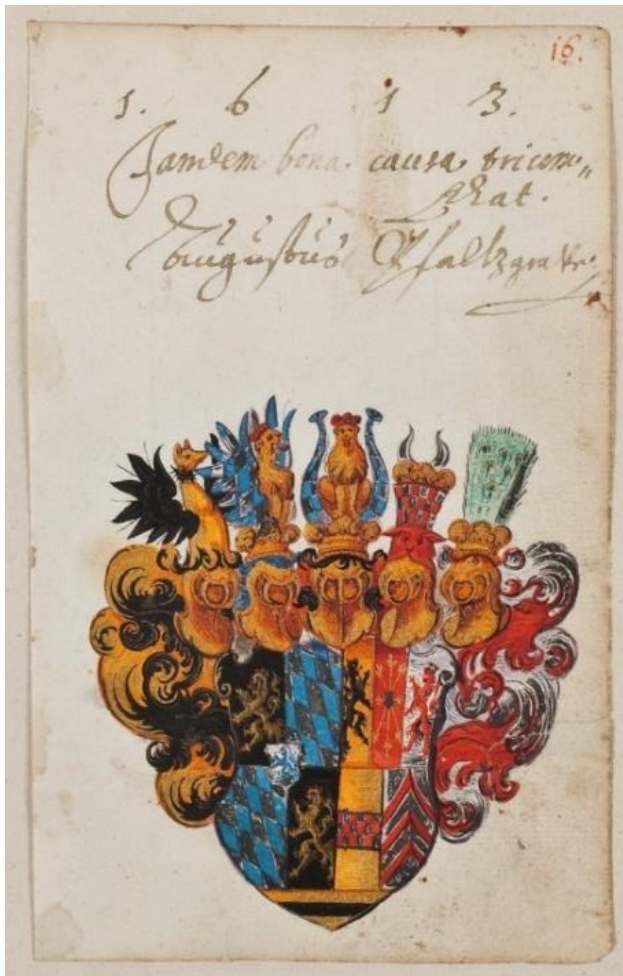 16.
1. 6 1 3.
Tandem bona causa trium„
phat.
Augustus Pfaltzgrave.